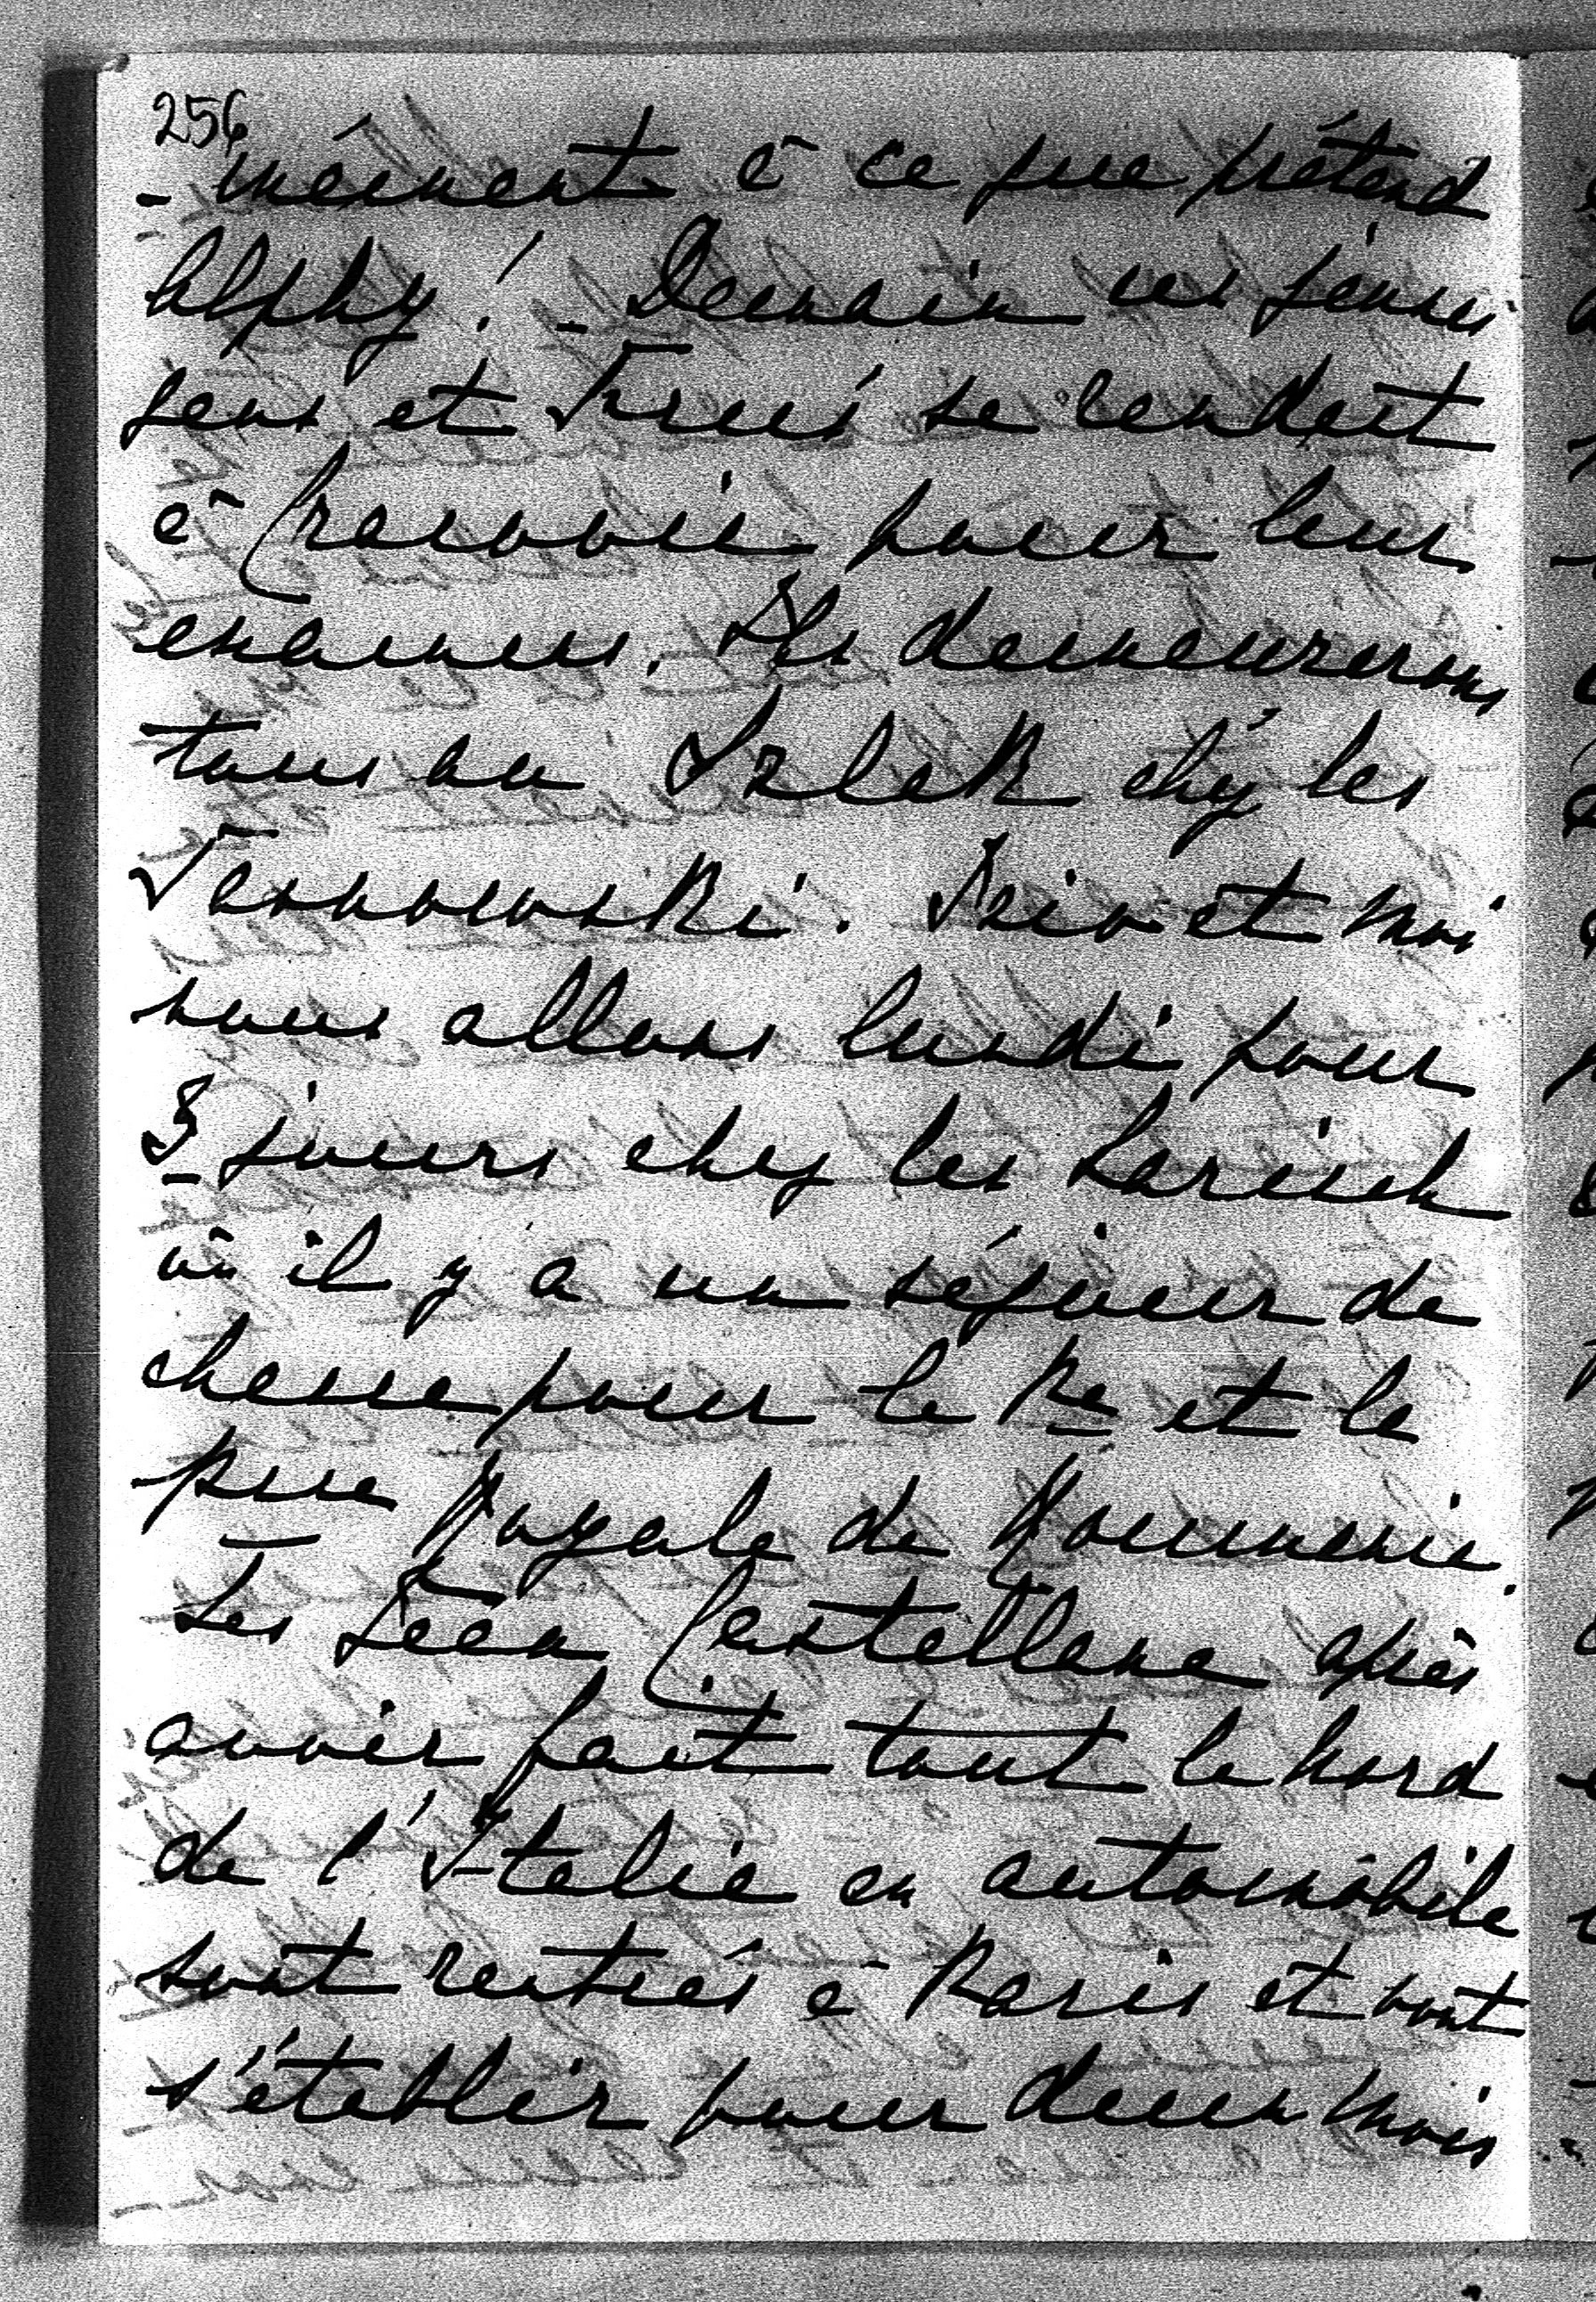 256
-mément à ce que prétend
Alphy! - Demain ces jeunes
gens et Trees se rendent
à Cracovie pour leur
examens. Ils demeurerons
tous au Szlak chez les
Tarnowski. et moi
nous allons lundi pour
3 jours chez les Larisch
où il y a un séjour de
chasse pour le Pce et la
psse Royale de Roumanie.
Les Jean Castellane après
avoir fait tout le Nord
de l'Italie en automobile
sont rentrés à Paris et vont
s'établir pour deux mois